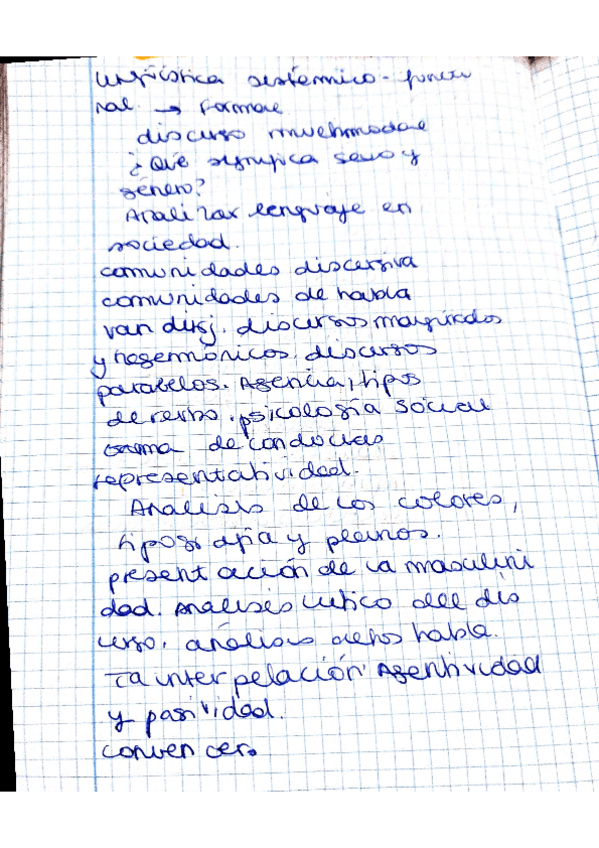 Lingüística sistémico-funcio
nal → formal
discurso multimodal
¿Qué significa sexo y
género?
Analizar lenguaje en
sociedad.
comunidades discursiva
comunidades de habla
van dikj. discursos marginados
y hegemónicos. discursos
paralelos. Agencia, tipos
de verbo. psicología social
de conductas
representatividad.
Analisis de los colores,
tipografía y planos.
presentación de la masculini
dad. Análisis crítico del dis
curso, análisis actos habla.
La interpelación Agentividad
y pasividad.